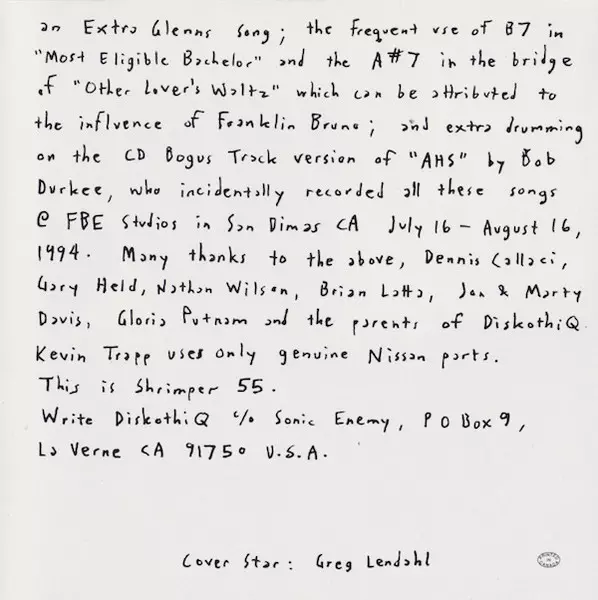 an Extra Glenns song; the frequent use of B7 in
"Most Eligible Bachelor" and the A#7 in the bridge
of "Other Lover's Waltz" which can be attributed to
the influence of Franklin Bruno; and extra drumming
on the CD Bogus Track version of "AHS" by Bob
Durkee, who incidentally recorded all these songs
@ FBE Studios in San Dimas CA July 16 - August 16,
1994. Many thanks to the above, Dennis Callaci,
Gary Held, Nathan Wilson, Brian Latta, Jan & Marty
Davis, Gloria Putnam and the parents of DiskothiQ.
Kevin Trapp uses only genuine Nissan parts.
This is Shrimper 55.
Write DiskothiQ c/o Sonic Enemy, P O Box 9,
La Verne CA 91750 U.S.A.
Cover Star: Greg Lendahl
PRINTED IN CANADA